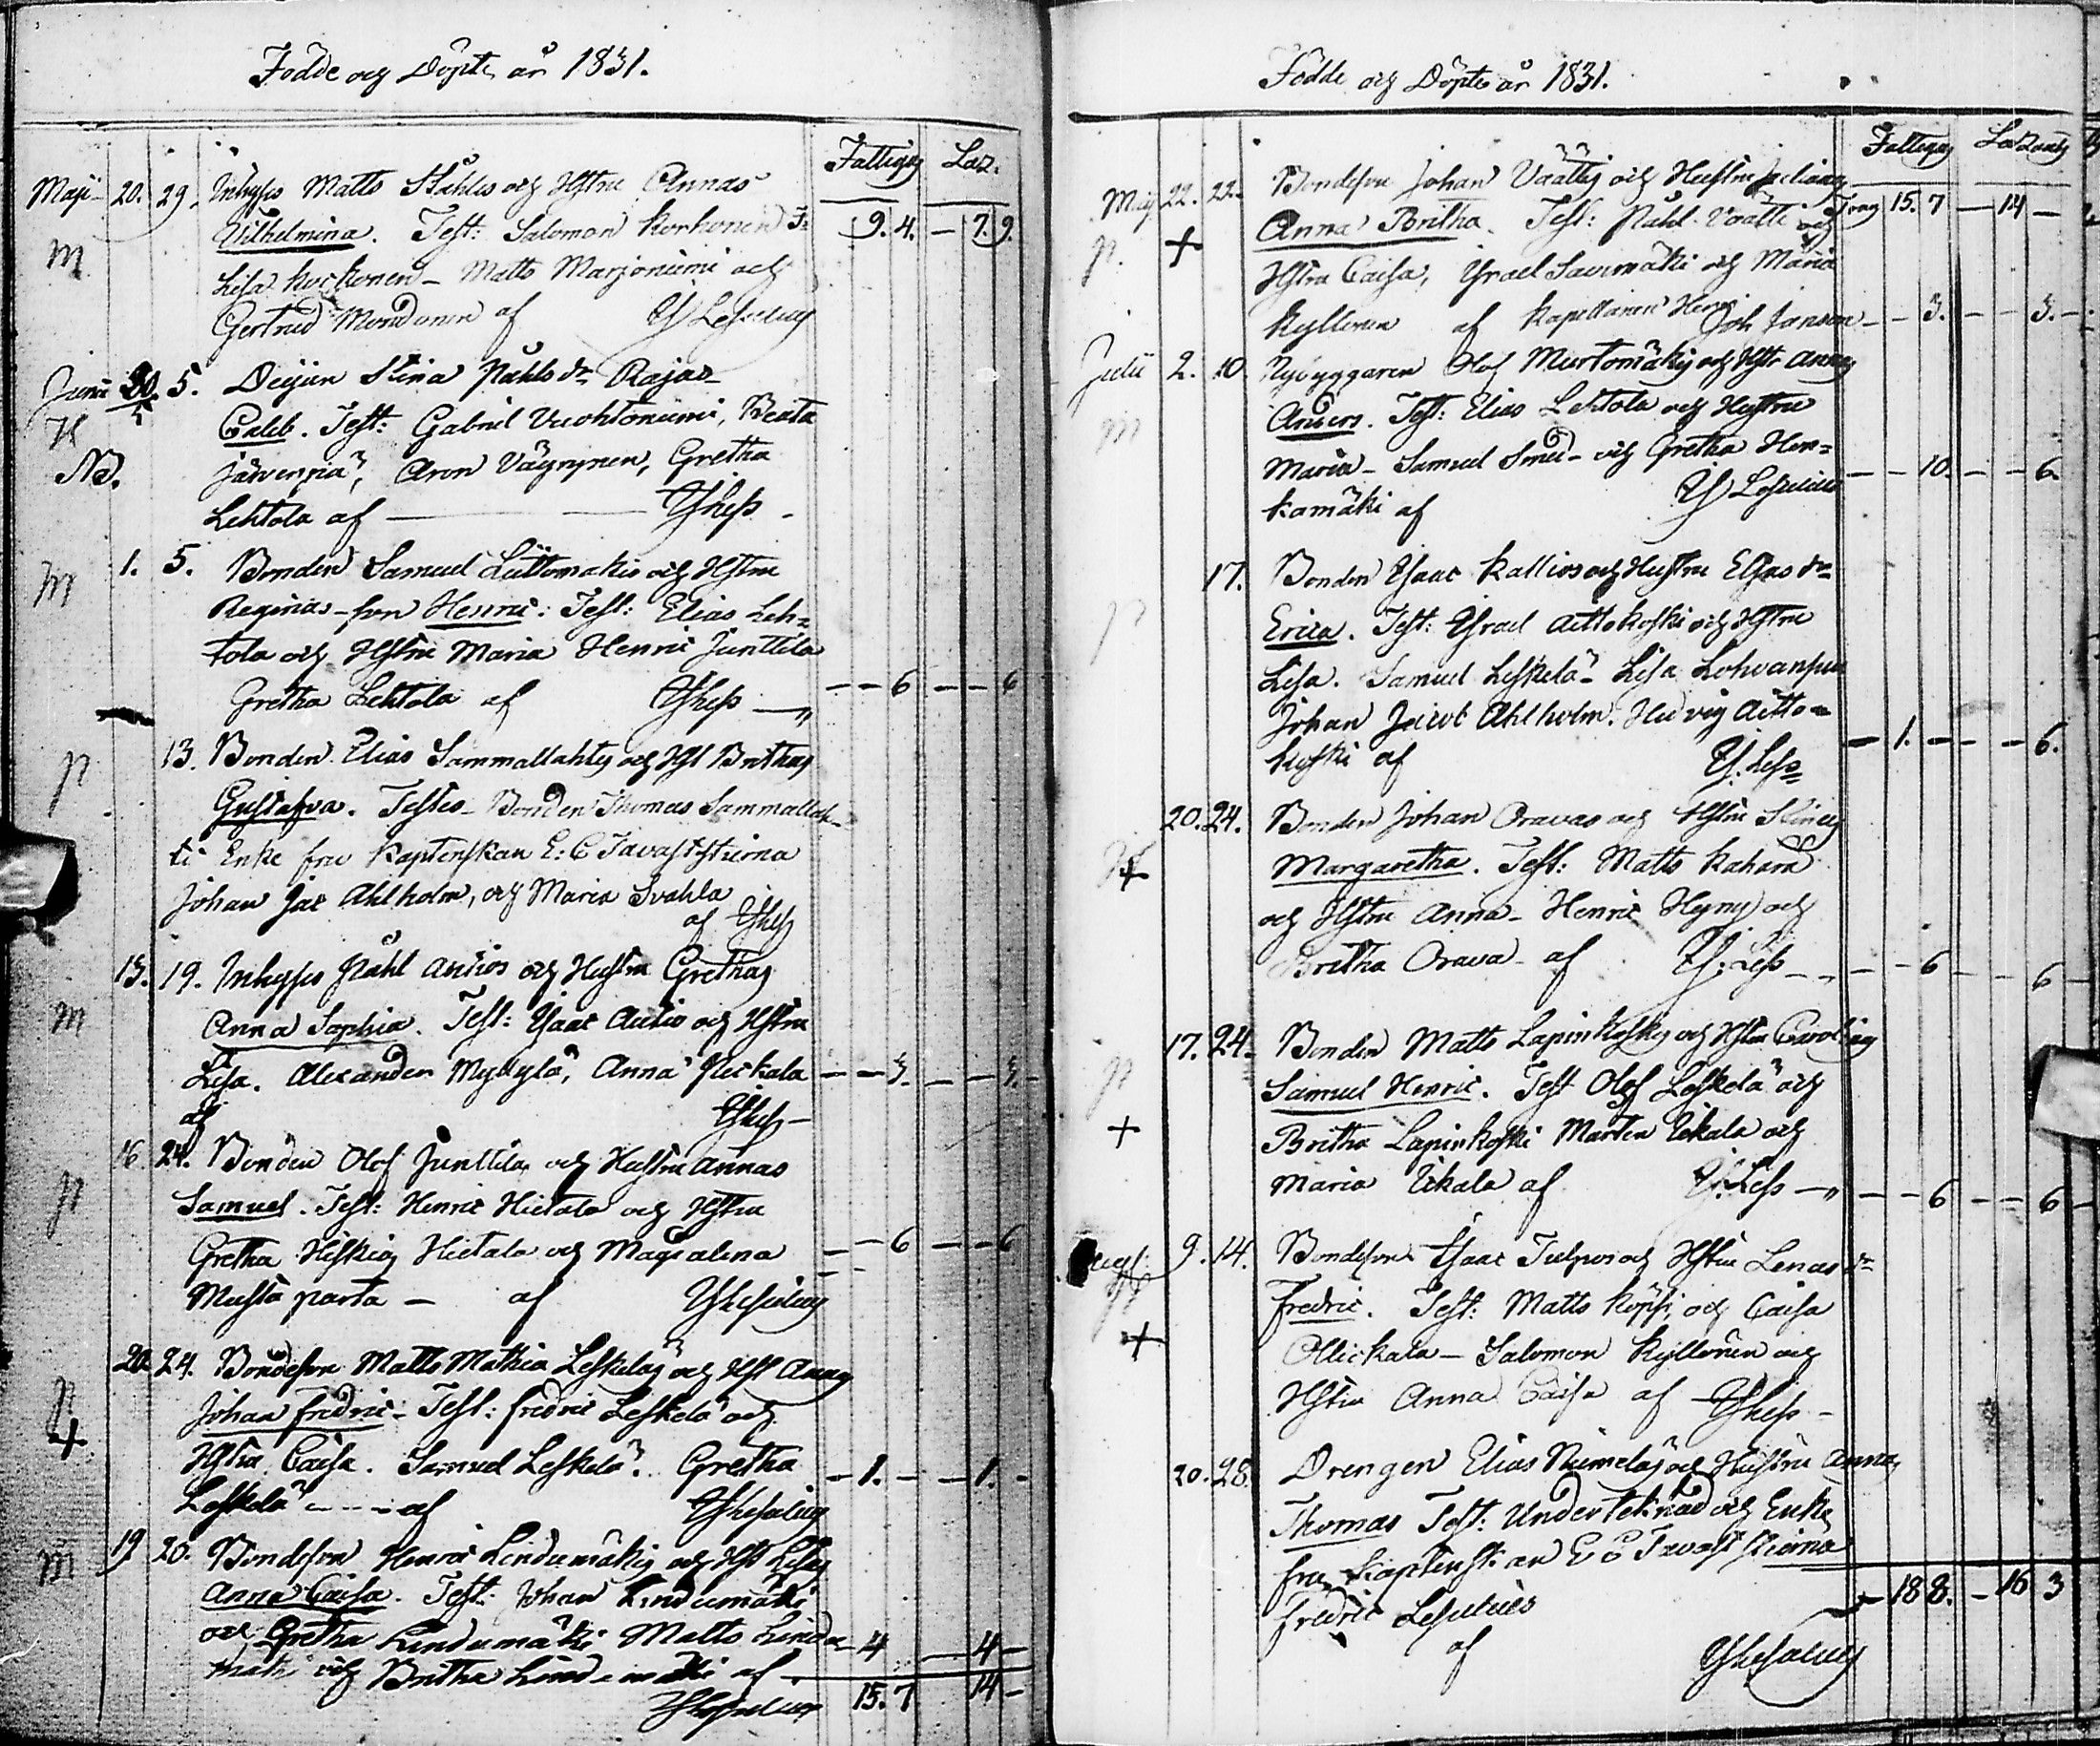 Födde och Döpte år 1831.
Fattiga Laz.
Maji 20. 29. Inhyses Matts Ståhles och Hstru Annas
M Wilhelmina. Test: Salomon Korhonen 9. 4. — 7. 9.
Lisa Korhonen - Matts Marjoniemi och
Gertrud af
Junii 30. 5. Deijan Stina Påhls dr Rajas
Caleb. Test: Gabriel Vuohtoniemi, Beata
NB. Järvenpää, Aron Väyrynen, Gretha
Lehtola af
M 1. 5. Bonden Samuel och Hstru
Reginas son Henric: Test: Elias Leh=
tola och Hstru Maria Henric Junttila
Gretha Lehtola af — — 6 — — 6
13. Bonden Elias Sammallahtis och Hst Brithas
Gustafva. Testes - Bonden Thomas Sammallah-
ti Enke fru Kaptenskan E: C Tavaststierna
Johan Jac Ahlholm, och Maria Svahla
af
15. 19. Inhyses Påhl Autios och Hustru Grethas
M Anna Sophia. Test: Ysaac Autio och Hstru
Lisa. Alexander Myllylä, Anna — — 3. — — 3.
af
16. 24. Bonden Olof Junttilas och Hustru Annas
Samuel. Test: Henric Hietala och Hstru
Gretha Hietala och Magdalena — — 6 — — 6
Mustaparta — af
20. 24. Bondeson Matts Leskeläs och Hst Annas
Johan Fredric - Test: Fredric Leskelä och
+ Hstru Caisa. Samuel Leskelä. Gretha — 1. — — 1. —
Leskelä - - - af
M 19 20. Bondeson Henric Lindumäkis och Hst Lisas
Anna Caisa. Test: Johan Lindumäki
och Gretha Lindumäki Matts Lindu- 4 4 —
mäki och Britha Lindumäki af
15. 7 14 —
Födde och Döpte år 1831.
Fattiga Lazaret
Maji 22. 22. Bondeson Johan Väättis och Hustru Julianas
+ Anna Britha. Test: Påhl Väätti och Trag 15. 7 — 14 —
Hstru Caisa, Ysrael Saarimäki och Maria
Kyllönen af Kapellanen Herr Joh Janson — — 3. — — 3. —
Julii 2. 10. Nybyggaren Olof Murtomäkis och Hstr Annas
M Anders. Test: Elias Lehtola och Hustru
Maria - Samuel Smed - och Gretha Hon=
kamäki af — — 10. — — 6.
17. Bonden Ysaac Kallios och Hustru Elsas dr
Erica. Test: Ysrael Aittokoski och Hstru
Lisa. Samuel Leskelä - Lisa
Johan Jacob Ahlholm. Hedvig Aitto=
koski af — 1. — — — 6.
20. 24. Bonden Johan Oravas och Hstru Stinas
+ Margaretha. Test: Matts
och Hstru Anna - Henric och
Britha Orava - af — — 6 — — 6
17. 24. Bonden Matts Lapinkoskis och Hstru Carolinas
Samuel Henric. Test Olof Leskelä och
+ Britha Lapinkoski Mårten Ukala och
Maria Ukala af — — 6 — — 6
9. 14. Bondeson Ysaac Tulpos och Hstru Lenas dr
Fredric. Test: Matts och Caisa
+ Ollickala - Salomon Kyllönen och
Hstru Anna Caisa af
20. 28. Drengen Elias Niemeläs och Hustru Annas
Thomas Test: Underteknad och Enke
fru Kaptenskan E C Tavaststierna
Fredric 18 8. — 16 3
af